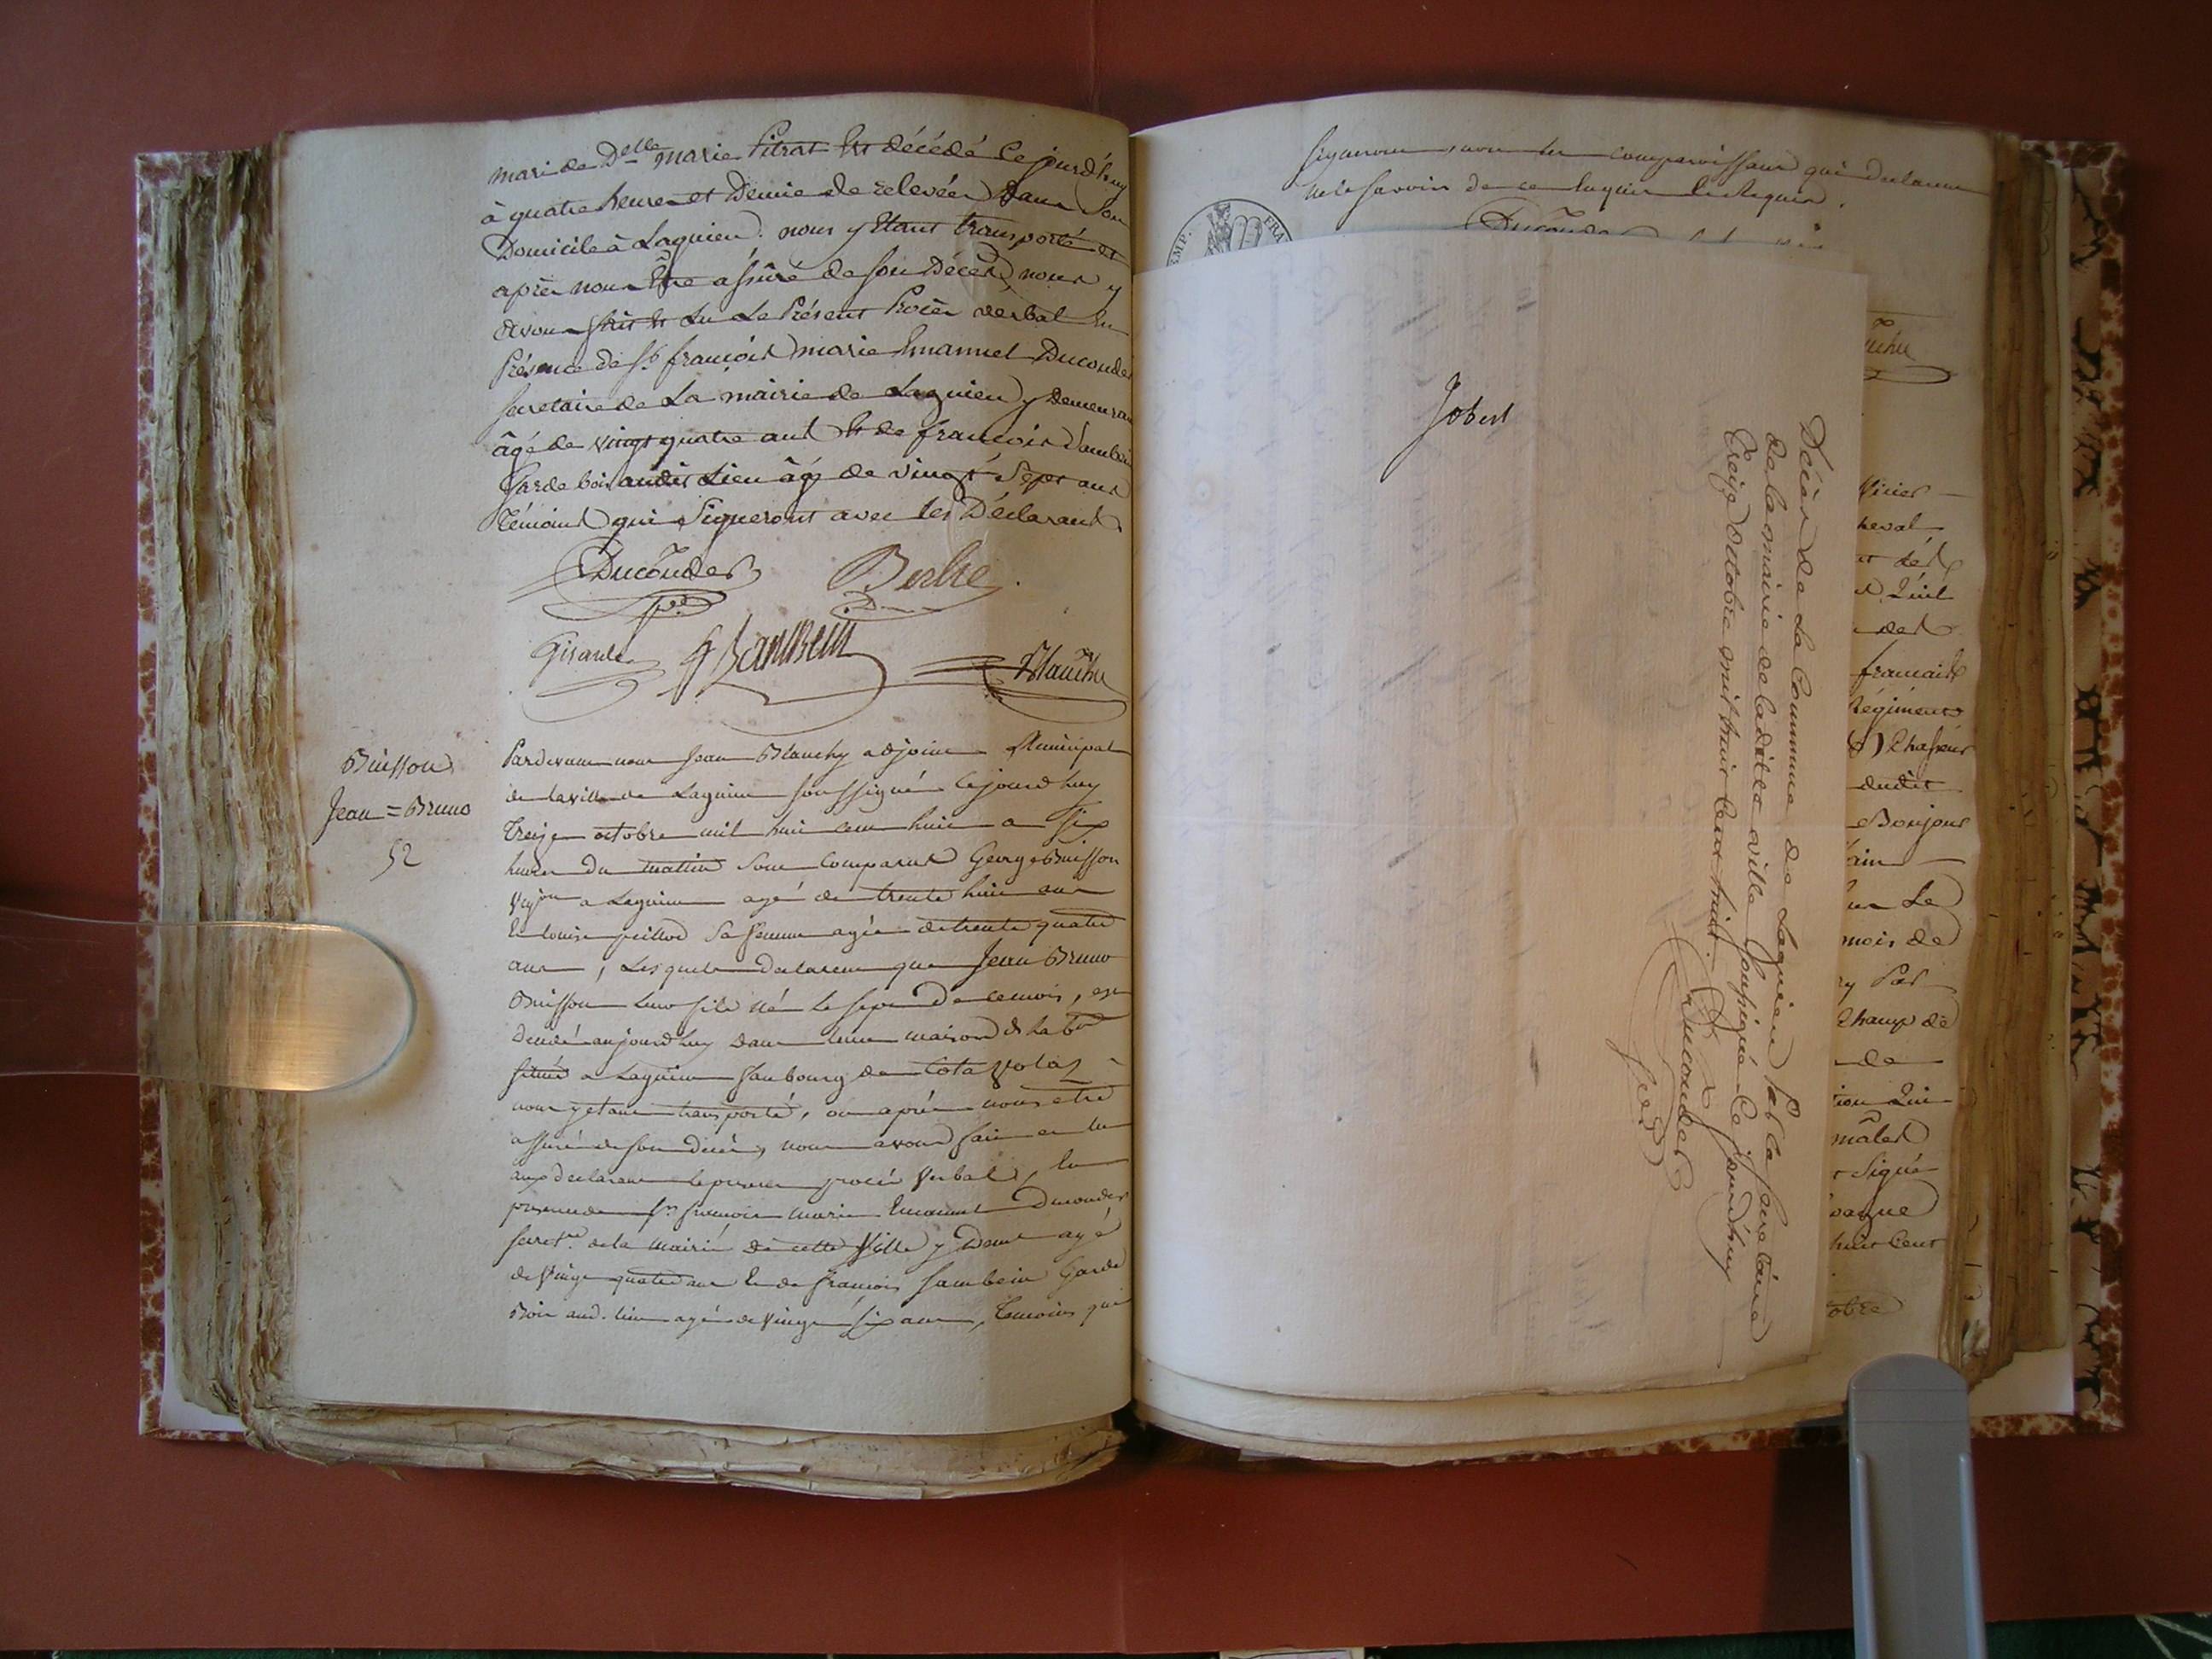 mari de Delle marie Pitrat Est décédé Cejourd'huy
à quatre heures et Demie de relevée Dans Son
Domicile à Lagnieu. nous y Etant transporté et
après nous Être assuré de son Décès, nous y
avons fait et Lu Le Présent Procès verbal En
Présence de Sr françois marie Emanuel Ducouder
secretaire de La mairie de Lagnieu y Demeurant
âgé de vingt quatre ans Et de françois Sambein
Garde bois audit Lieu âgé de vingt Sept ans
Témoins qui Signeront avec les Déclarants
Ducouder Berlie
Girault Sambein Blanchy
Buisson
Jean = Bruno
52
Pardevant nous Jean Blanchy adjoint Municipal
de la ville de Lagnieu soussigné cejourdhuy
treize octobre mil huit cent huit a six
heures du matin sont comparus George Buisson
Vigon a Lagnieu agé de trente huit ans
Et louise peillod sa femme agée de trente quatre
ans, Lesquels declarent que Jean Bruno
Buisson leur fils né le sept de ce mois, est
Decédé aujourdhuy dans leur maison d'habon
située a Lagnieu faubourg de
nous y etant transporté, ou après nous etre
assuré de son decès, nous avons fait et lu
aux declarans le present procès verbal, En
presence de Sr francois marie Emanuel Ducouder
secretre de la mairie de cette Ville y Demt agé
de Vingt quatre ans Et de francois Sambein Garde
Bois aud. lieu agé de Vingt six ans, temoins qui
signeront, non les comparoissans qui declarent
ne le savoir de ce Enquis et Requis.
Ducouder
Jobert
Décès de La Commune de Lagnieu Par le secretaire
de la mairie de la dite ville soussigné Ce jourd'huy
Treize Octobre mil huit Cent huit.
Ducouder
heval
français
Régiment
Chasseur
dudit
Bonjour
Le
mois de
Par
Champ de
de
mâles
Signé
huit Cent
obre